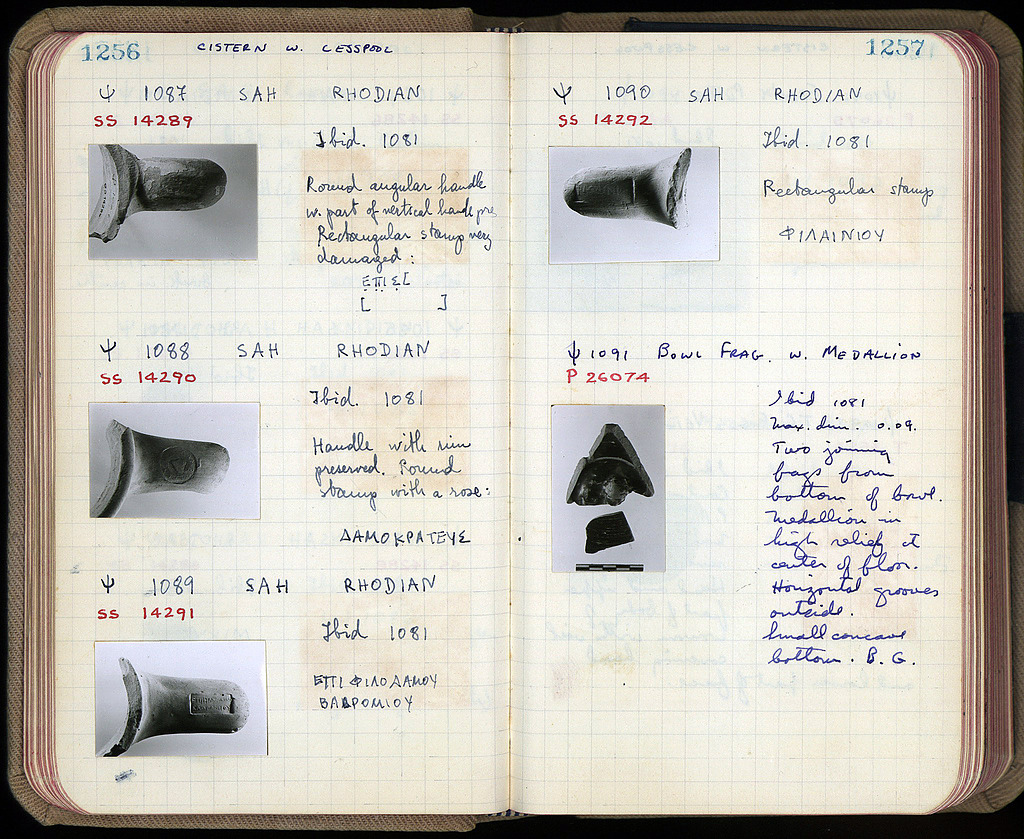 1256 CISTERN W. CESSPOOL
Ψ 1087 SAH RHODIAN
SS 14289
Ibid. 1081
Round angular handle
w. part of vertical handle pres
Rectangular stamp very
damaged:
ΕΠΙ Σ[
[ ]
Ψ 1088 SAH RHODIAN
SS 14290
Ibid. 1081
Handle with rim
preserved. Round
stamp with a rose:
ΔΑΜΟΚΡΑΤΕΥΣ
Ψ 1089 SAH RHODIAN
SS 14291
Ibid 1081
ΕΠΙ ΦΙΛΟΔΑΜΟΥ
ΒΑΔΡΟΜΙΟΥ
1257
Ψ 1090 SAH RHODIAN
SS 14292
Ibid. 1081
Rectangular stamp
ΦΙΛΑΙΝΙΟΥ
Ψ 1091 BOWL FRAG. W. MEDALLION
P 26074
Ibid 1081
Max. dim. 0.09.
Two joining
frags from
bottom of bowl.
Medallion in
high relief at
center of floor.
Horizontal grooves
outside.
Small concave
bottom. B. G.